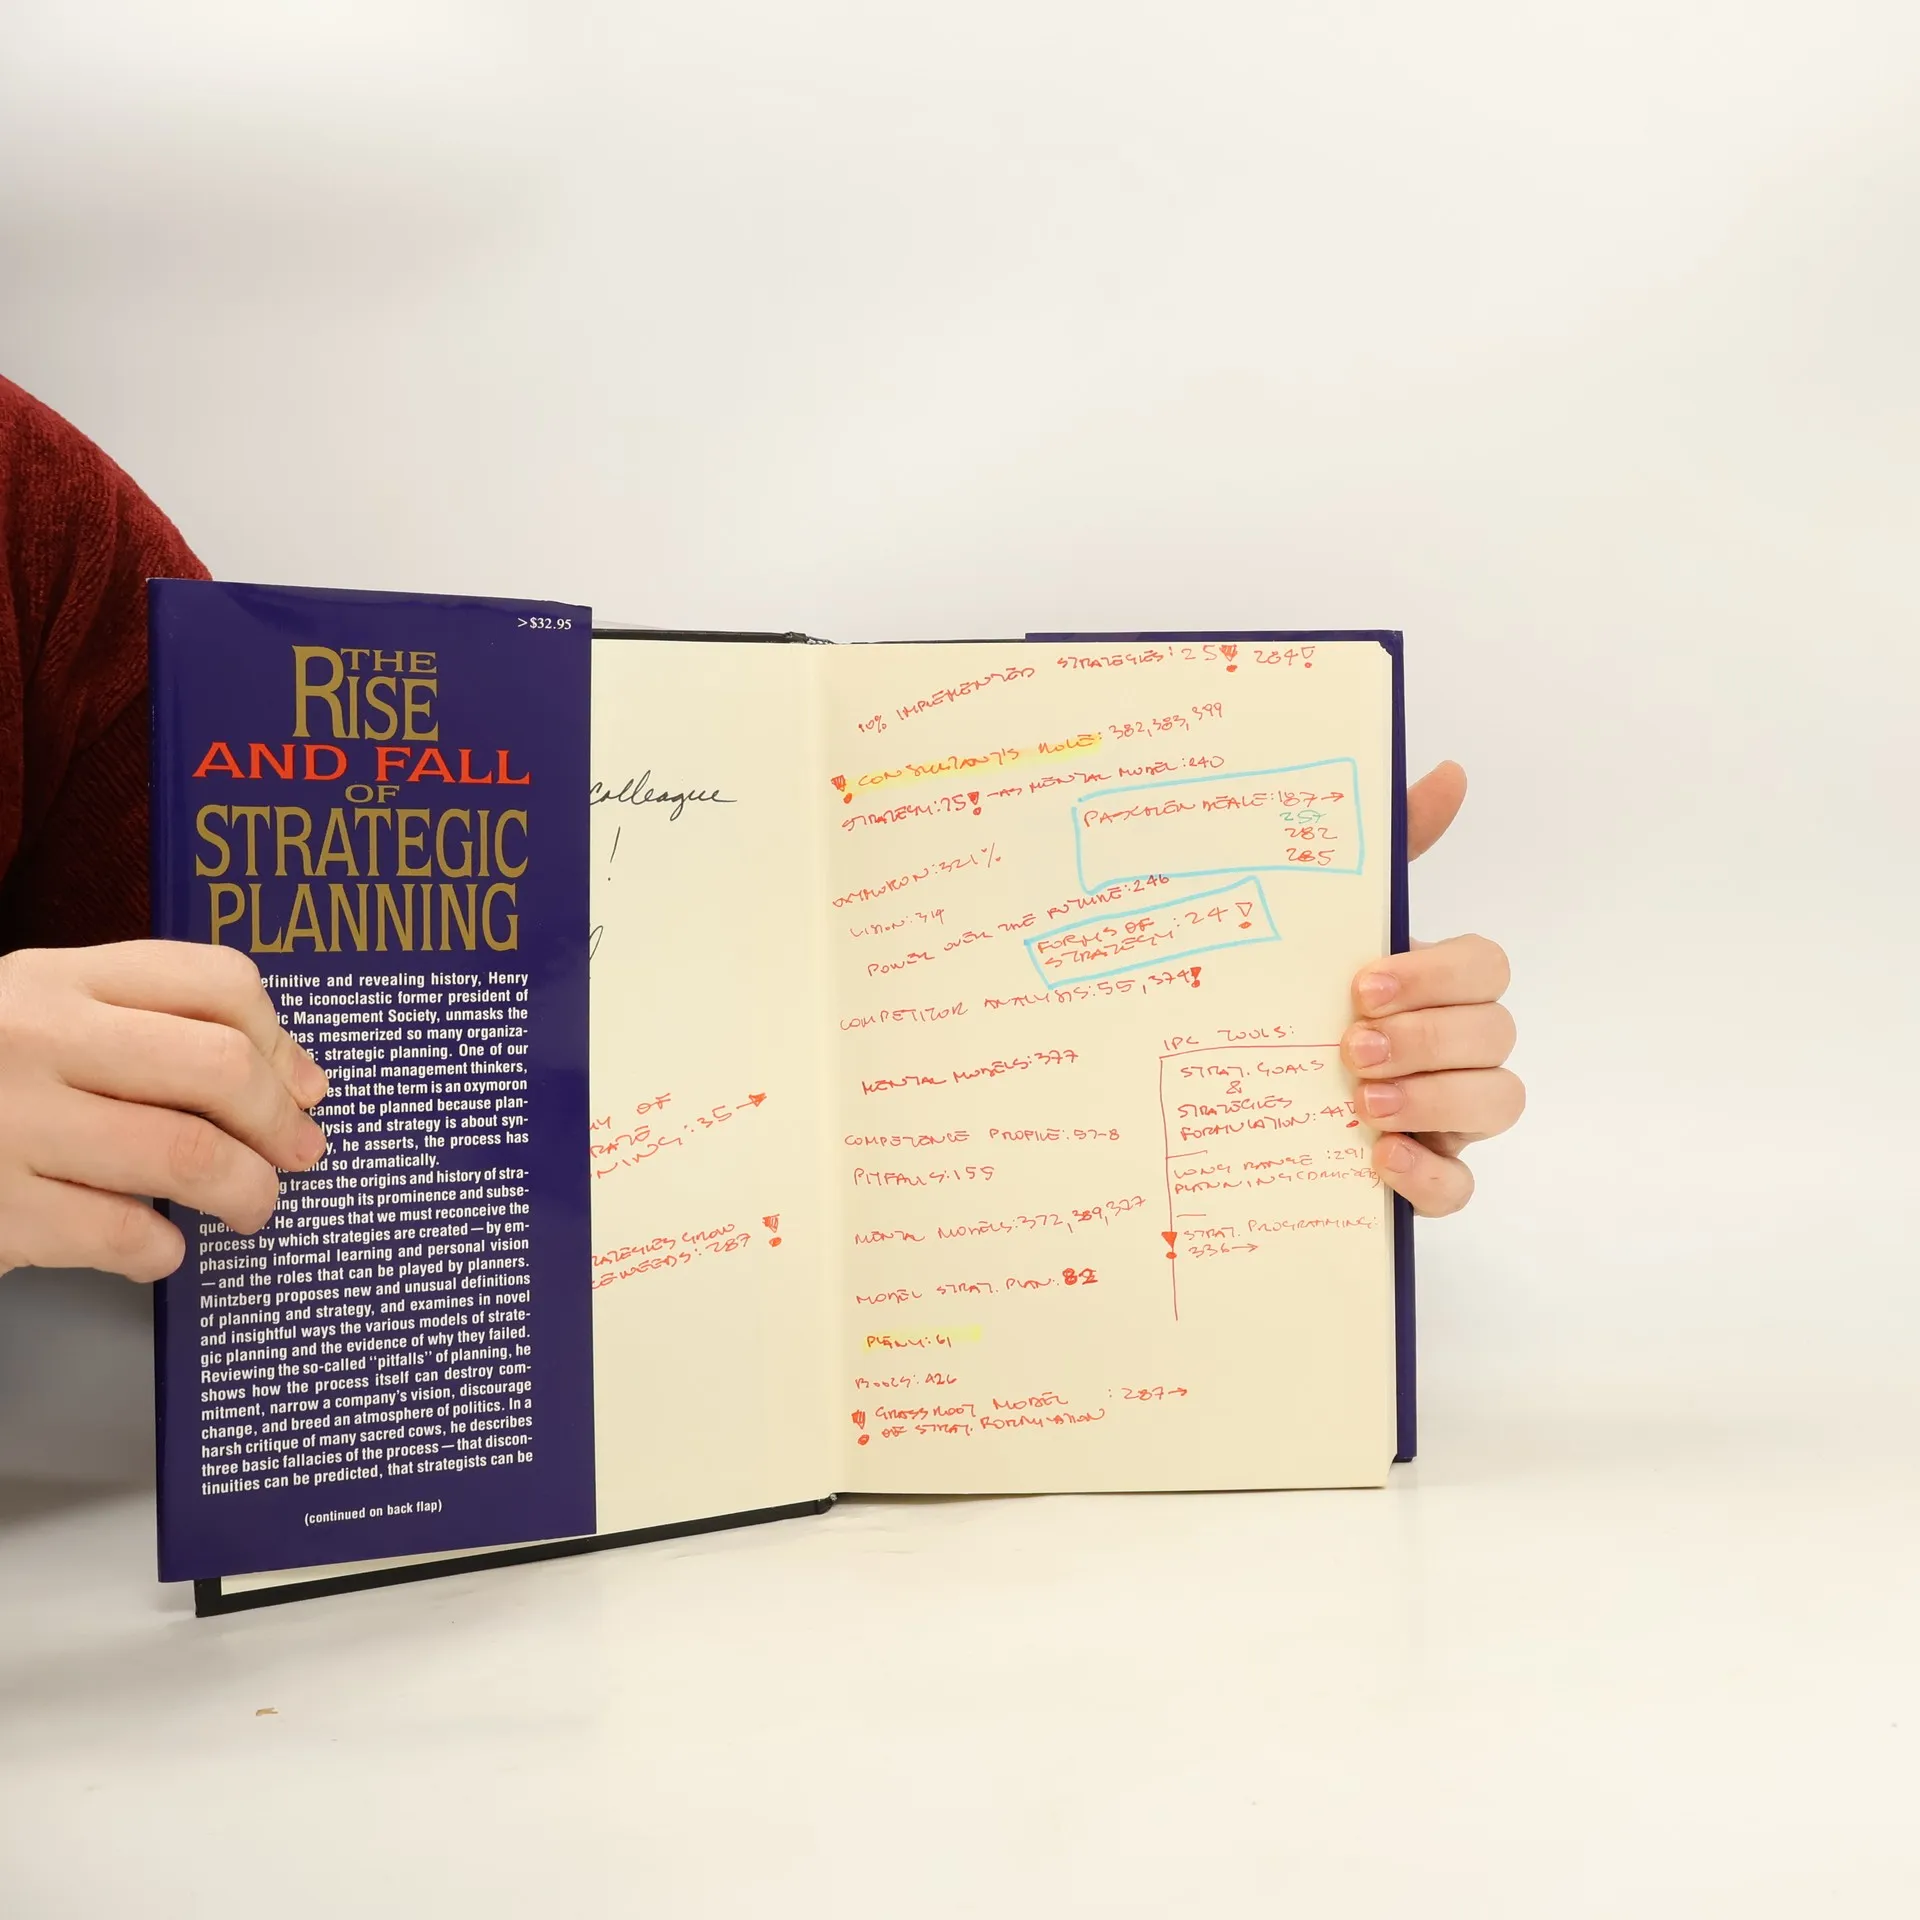 >$32.95
THE
RISE
AND FALL
OF
STRATEGIC
PLANNING
efinitive and revealing history, Henry
the iconoclastic former president of
ic Management Society, unmasks the
has mesmerized so many organiza-
5: strategic planning. One of our
original management thinkers,
es that the term is an oxymoron
cannot be planned because plan-
lysis and strategy is about syn-
y, he asserts, the process has
nd so dramatically.
g traces the origins and history of stra-
ing through its prominence and subse-
que. He argues that we must reconceive the
process by which strategies are created — by em-
phasizing informal learning and personal vision
— and the roles that can be played by planners.
Mintzberg proposes new and unusual definitions
of planning and strategy, and examines in novel
and insightful ways the various models of strate-
gic planning and the evidence of why they failed.
Reviewing the so-called "pitfalls" of planning, he
shows how the process itself can destroy com-
mitment, narrow a company's vision, discourage
change, and breed an atmosphere of politics. In a
harsh critique of many sacred cows, he describes
three basic fallacies of the process — that discon-
tinuities can be predicted, that strategists can be
(continued on back flap)
colleague
!
OF
RATE
NING: 35 →
RATEGIES GROW
WEEDS: 287 !
10% IMPLEMENTED STRATEGIES: 25! 284!
! CONSULTANT'S ROLE: 382, 383, 399
STRATEGY: 75! - AS MENTAL MODEL: 240
187 →
257
282
285
OXYMORON: 321%
VISION: 319
POWER OVER THE FUTURE: 246
FORMS OF
STRATEGY: 24!
COMPETITOR ANALYSIS: 55, 374!
MENTAL MODELS: 377
COMPETENCE PROFILE: 57-8
PITFALLS: 159
MENTAL MODELS: 372, 389, 377
MODEL STRAT. PLAN: 82
PLAN: 61
426
! GRASSROOT MODEL : 287 →
OF STRAT. FORMULATION
IPC TOOLS:
STRAT. GOALS
&
STRATEGIES
FORMULATION: 44!
LONG RANGE : 291
PLANNING
STRAT. PROGRAMMING:
336 →